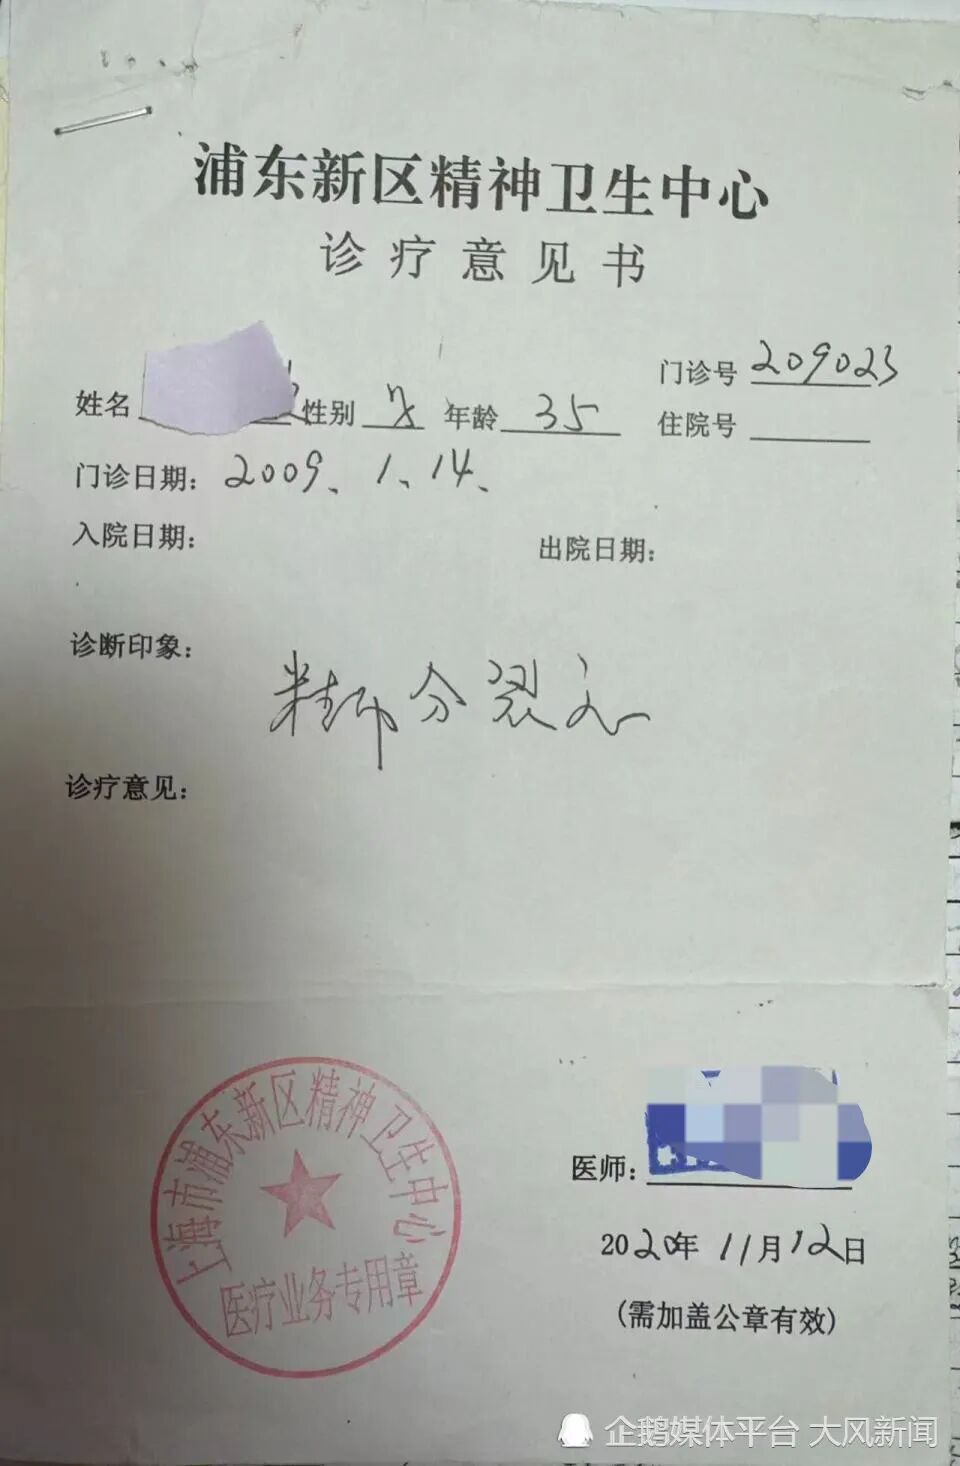 浦东新区精神卫生中心
诊疗意见书
门诊号 209023
姓名 性别 女 年龄 35 住院号
门诊日期：2009、1、14、
入院日期： 出院日期：
诊断印象：
精神分裂症
诊疗意见：
上海市浦东新区精神卫生中心
医疗业务专用章
医师：
2020年 11月12日
(需加盖公章有效)
企鹅媒体平台 大风新闻